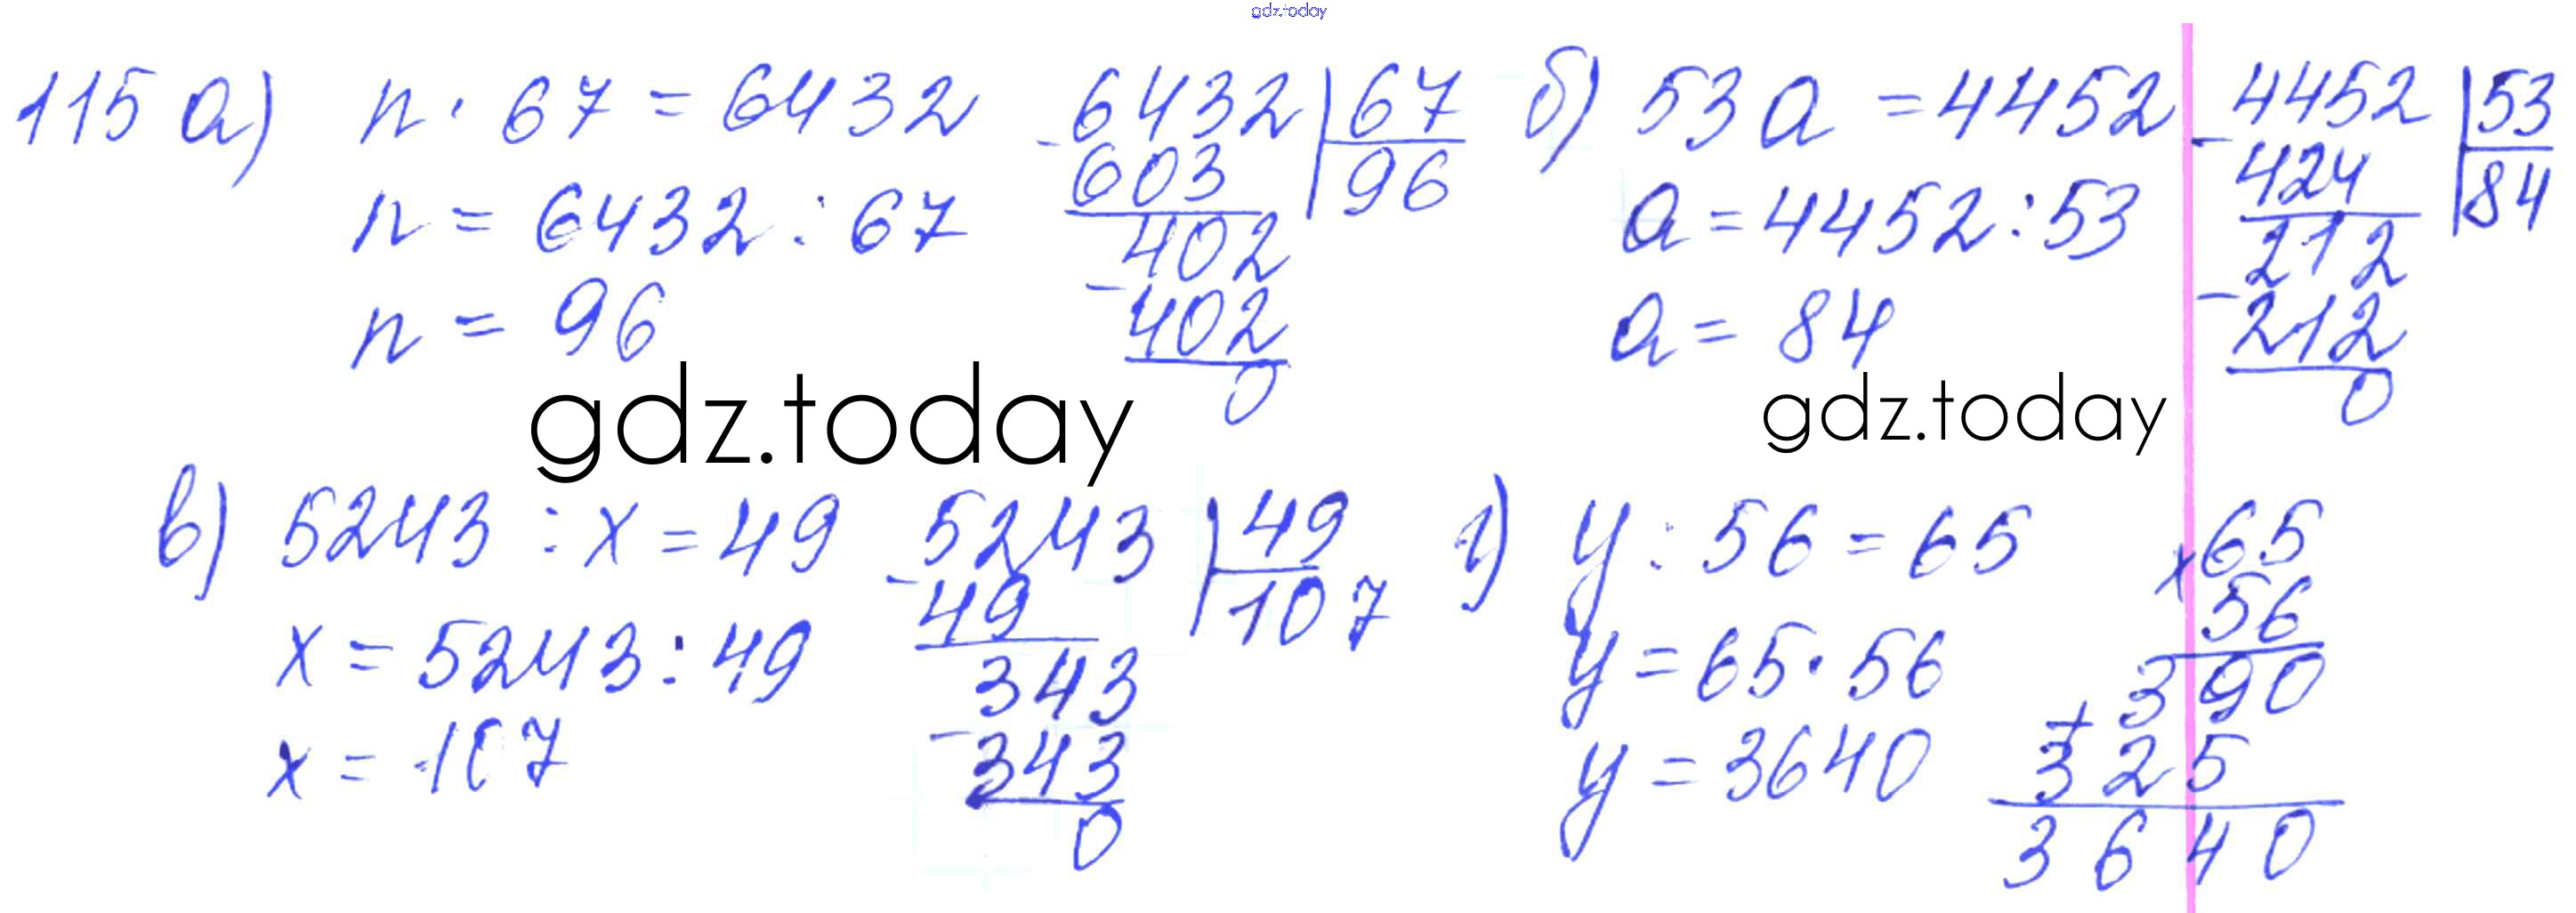 gdz.today
115 а) n · 67 = 6432
n = 6432 : 67
n = 96
- 6432 | 67
603 96
402
- 402
0
б) 53a = 4452
a = 4452 : 53
a = 84
- 4452 | 53
424 84
212
- 212
0
gdz.today
gdz.today
в) 5243 : x = 49
x = 5243 : 49
x = 107
- 5243 | 49
49 107
343
- 343
0
г) y : 56 = 65
y = 65 · 56
y = 3640
x 65
56
390
+ 325
3640